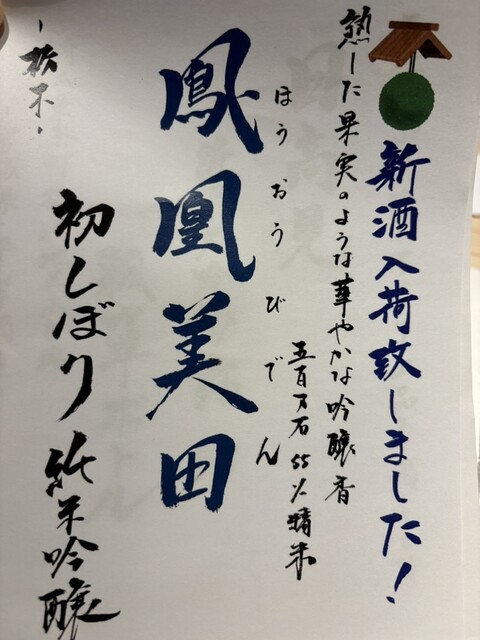 新酒入荷致しました!
熟した果実のような華やかな吟醸香
五百万石55%精米
ほうおうびでん
鳳凰美田
初しぼり 純米吟醸
-栃木-